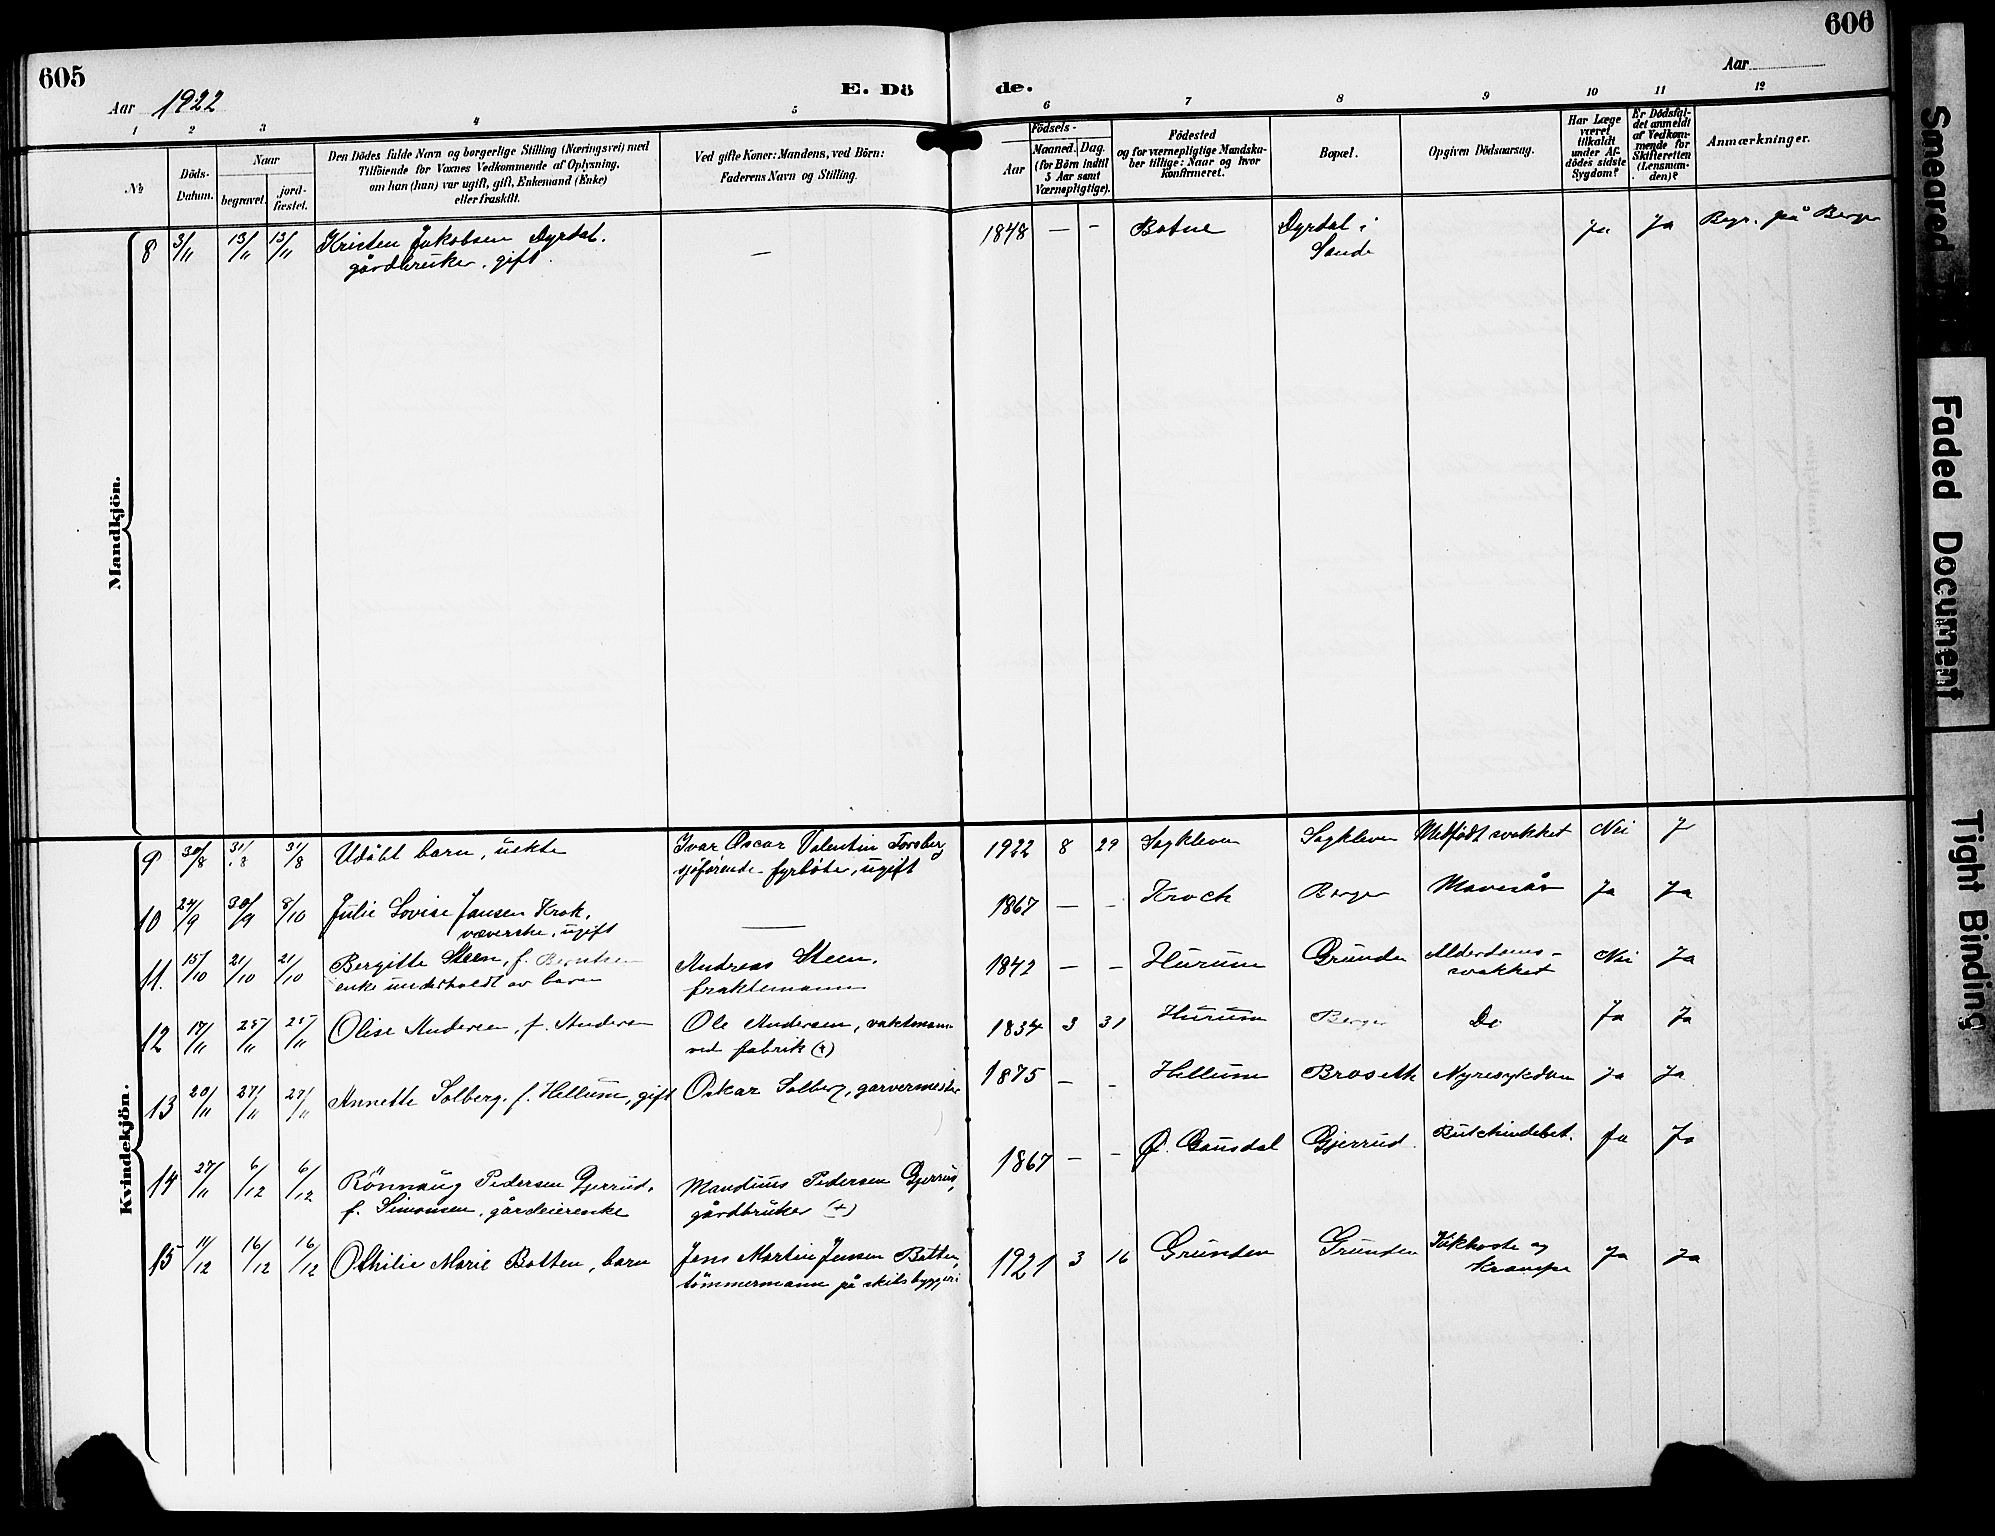 605
606
Aar 1922
E. Dö
de.
Aar
1 2 3 4 5 6 7 8 9 10 11 12
No
Döds-
Datum.
Naar
begravet.
jord-
fæstet.
Den Dödes fulde Navn og borgerlige Stilling (Næringsvei) med
Tilföiende for Voxnes Vedkommende af Oplysning,
om han (hun) var ugift, gift, Enkemand (Enke)
eller fraskilt.
Ved gifte Koner: Mandens, ved Börn:
Faderens Navn og Stilling.
Födsels-
Aar
Maaned. Dag.
(for Börn indtil
5 Aar samt
Værnepligtige).
Födested
og for værnepligtige Mandska-
ber tillige: Naar og hvor
konfirmeret.
Bopæl.
Opgiven Dödsaarsag.
Har Læge
været
tilkaldt
under Af-
dödes sidste
Sygdom?
Er Dödsfal-
det anmeldt
af Vedkom-
mende for
Skifteretten
(Lensman-
den)?
Anmærkninger.
Mandkjön.
8 3/11 13/11 13/11 Kristen Jakobsen Dyrdal. — 1848 — — Botne Dyrdal i Ja Ja Begr. på Berger
gårdbruker, gift. Sande
Kvindekjön.
9 30/8 31/8 31/8 Udöbt barn, uekte Ivar Oscar Valentin Forsberg 1922 8 29 Sagkleven Sagkleven Medfödt svakhet Nei J
sjöfarende fyrböter, ugift
10 24/9 30/9 8/10 Julie Lovise Jansen Krok, — 1867 — — Krock Berger Mavesår Ja Ja
væverske, ugift
11. 15/10 21/10 21/10 Bergitte Steen, f. Berntsen Andreas Steen, 1842 — — Hurum Grunden Alderdoms- Nei Ja
enke underholdt av barn fraktemann svakhet
12 17/11 25/11 25/11 Olise Andersen, f. Andersen Ole Andersen, vaktmann 1834 3 31 Hurum Berger Do Ja Ja
ved fabrik (+)
13 20/11 27/11 27/11 Annette Solberg, f. Hellum, gift Oskar Solberg, garvermester 1875 — — Hellum Broseth Nyresykdom Ja Ja
14 27/11 6/12 6/12 Rönnaug Pedersen Gjerrud, Mandius Pedersen Gjerrud, 1867 — — Ø. Gausdal Gjerrud Ja Ja
f. Simonsen, gårdeierenke gårdbruker (+)
15 11/12 16/12 16/12 Othilie Marie Botten, barn Jens Martin Jensen Botten, 1921 3 16 Grunden Grunden Kikhoste og Ja Ja
tömmermann på skibsbyggeri krampe
Smeared
Faded Document
Tight Binding